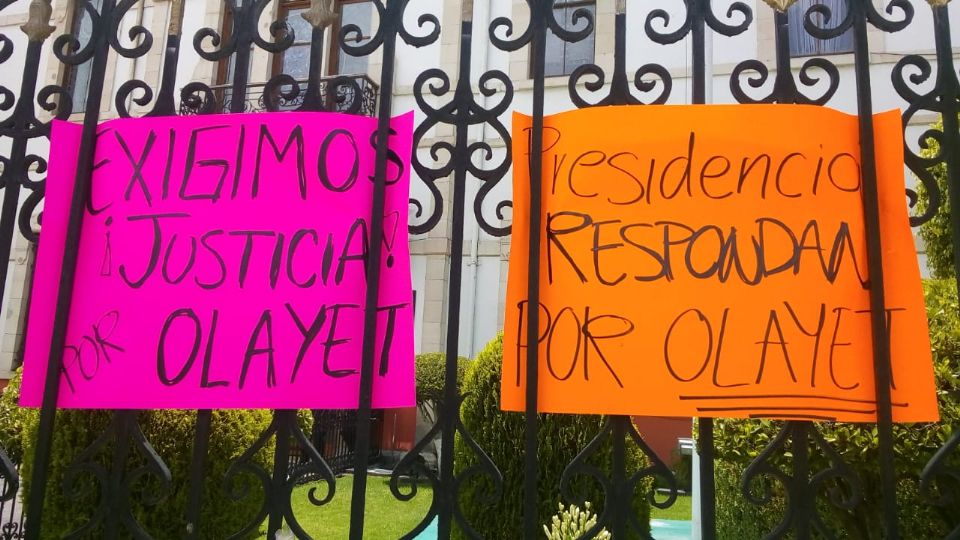 EXIGIMOS
¡JUSTICIA!
POR OLAYET
Presidencia
RESPONDAN
POR OLAYET